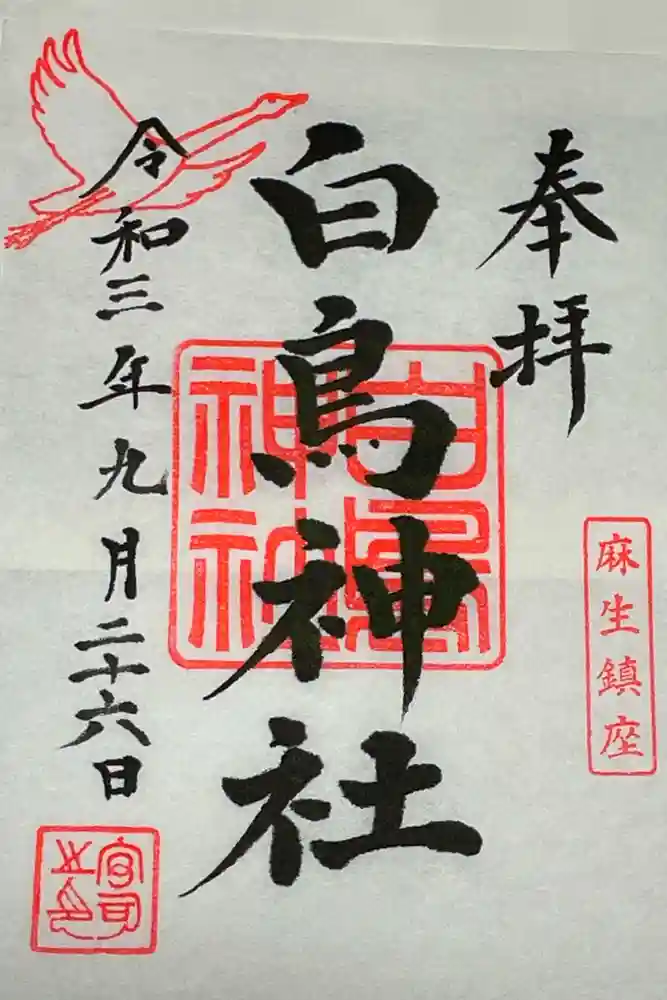 奉拝
麻生鎮座
白鳥神社
白鳥
神社
令和三年九月二十六日
宮司
之印